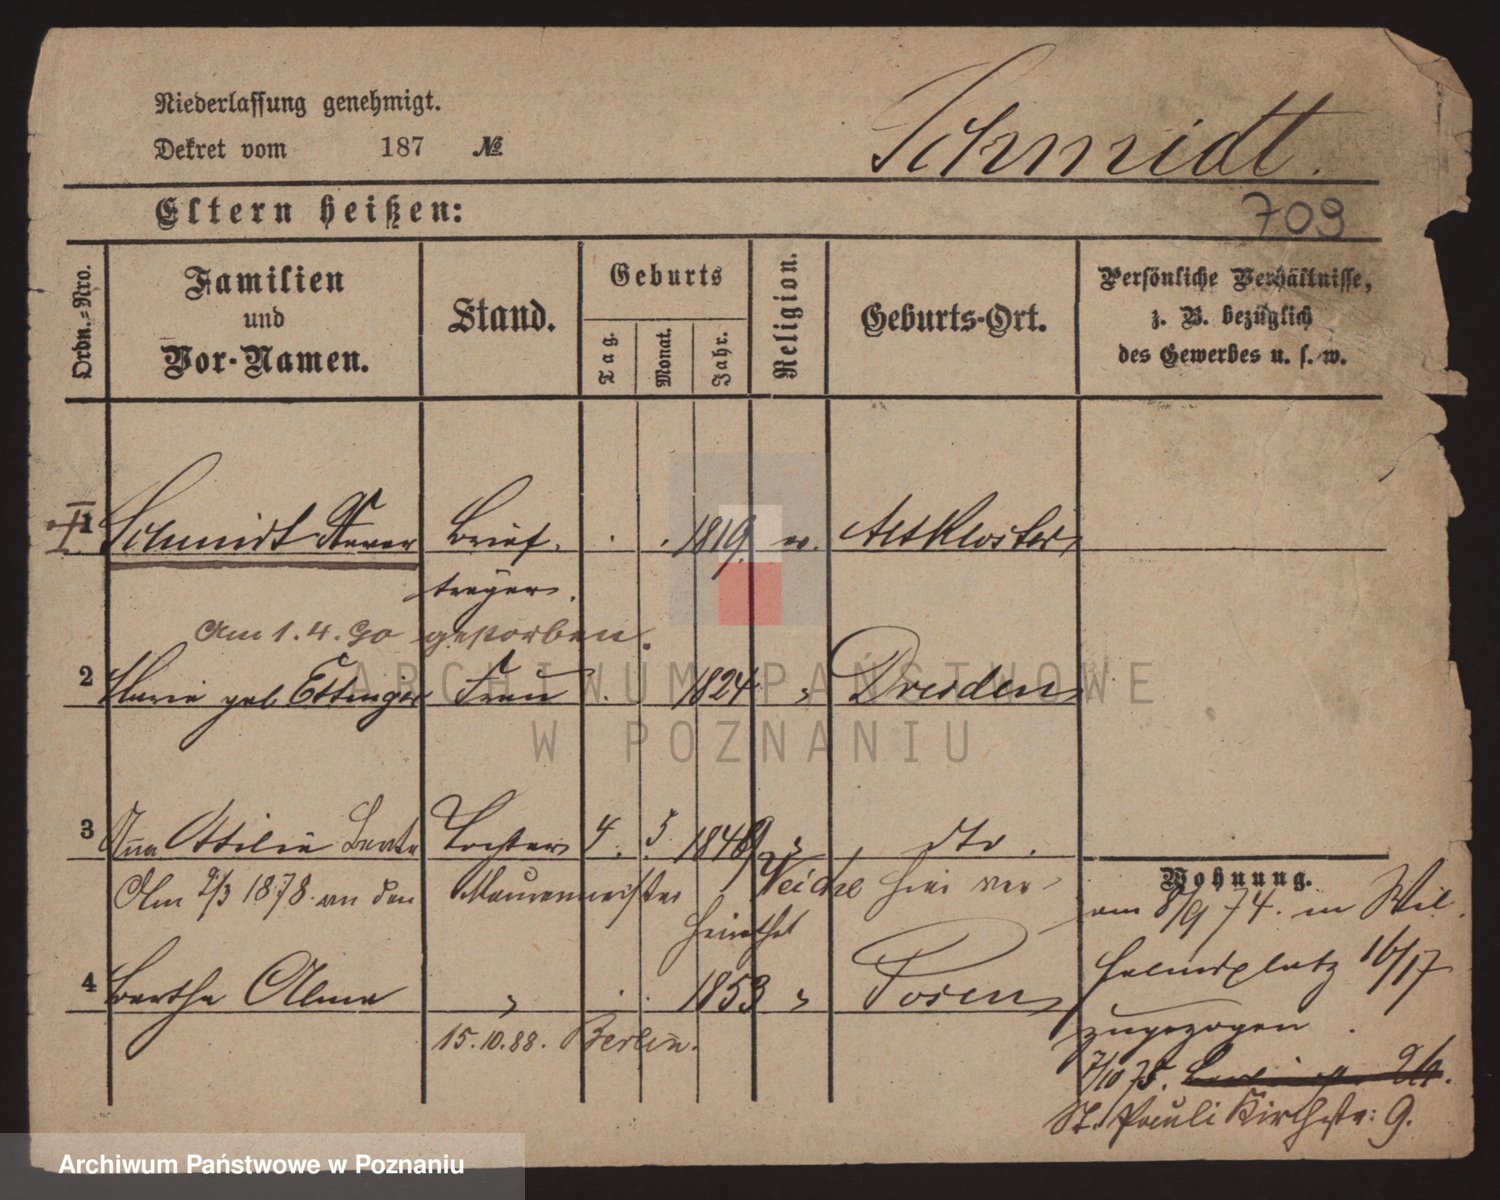 Niederlassung genehmigt.
Dekret vom 187 №
Schmidt.
Eltern heißen:
709
Ordn.-Nro.
Familien und Vor-Namen.
Stand.
Geburts
Tag. Monat. Jahr.
Religion.
Geburts-Ort.
Persönliche Verhältnisse,
z. B. bezüglich
des Gewerbes u. s. w.
1 Schmidt Brief- 1819 ev. Altkloster
träger.
Am 1.4.90 gestorben.
2 Marie geb. Ettinger Frau 1824 " Dresden
3 Anna Ottilie Beate Tochter 4. 5. 1849 " dto.
Am 2/3 1878 an den Maurermeister Weiche hier ver-
heirathet
4 Bertha Alma " 1853 " Posen
15.10.88. Berlin.
Wohnung.
am 8/9 74. in Wil-
helmsplatz 16/17
zugezogen.
7/10 75.
St. Pauli Kirchstr: 9.
ARCHIWUM PAŃSTWOWE
W POZNANIU
Archiwum Państwowe w Poznaniu